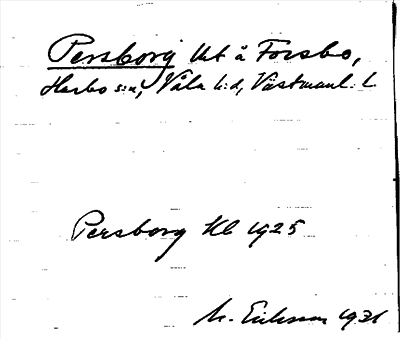 Persborg lht å Forsbo,
Harbo s:n, Våla h:d, Västmanl: L
Persborg Kb 1925
M. Eriksson 1931